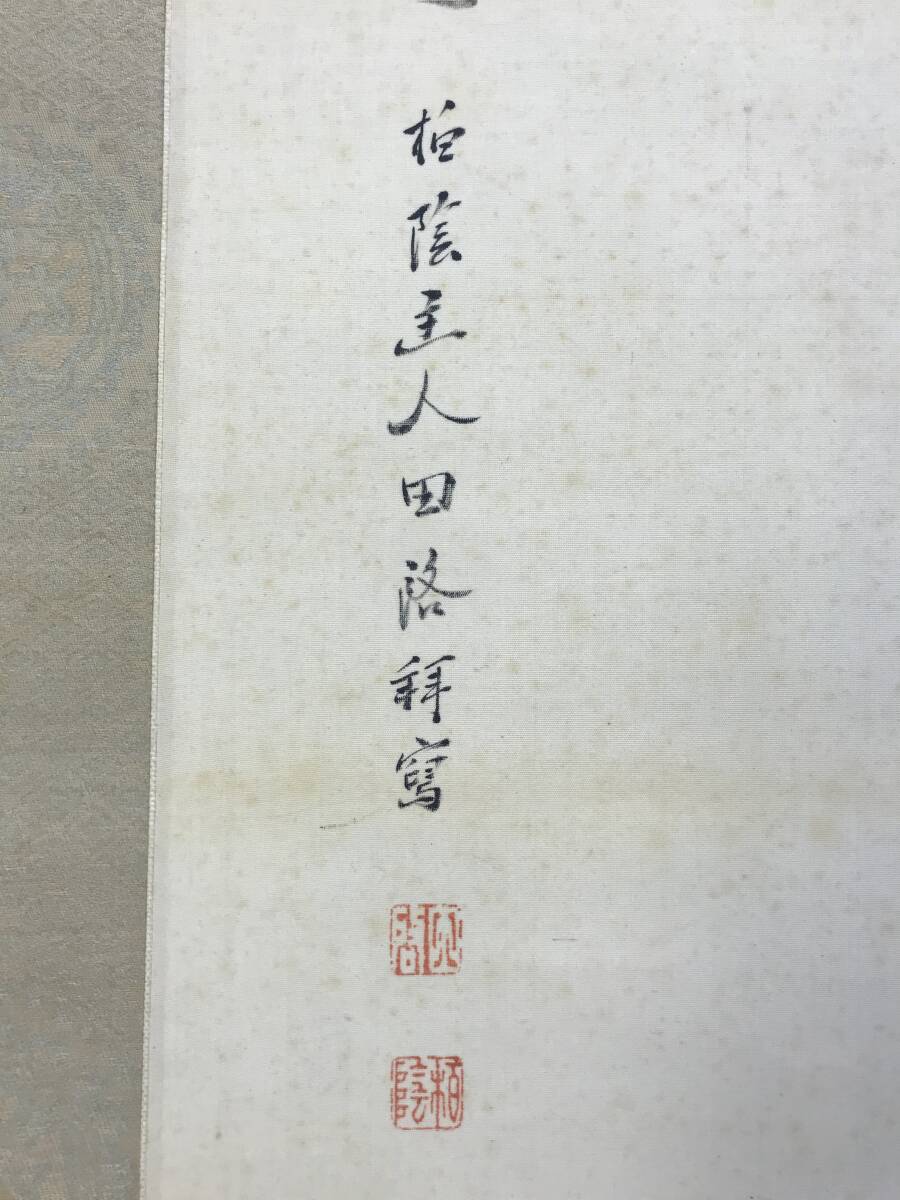 柏陰主人田啓拜寫
柏陰